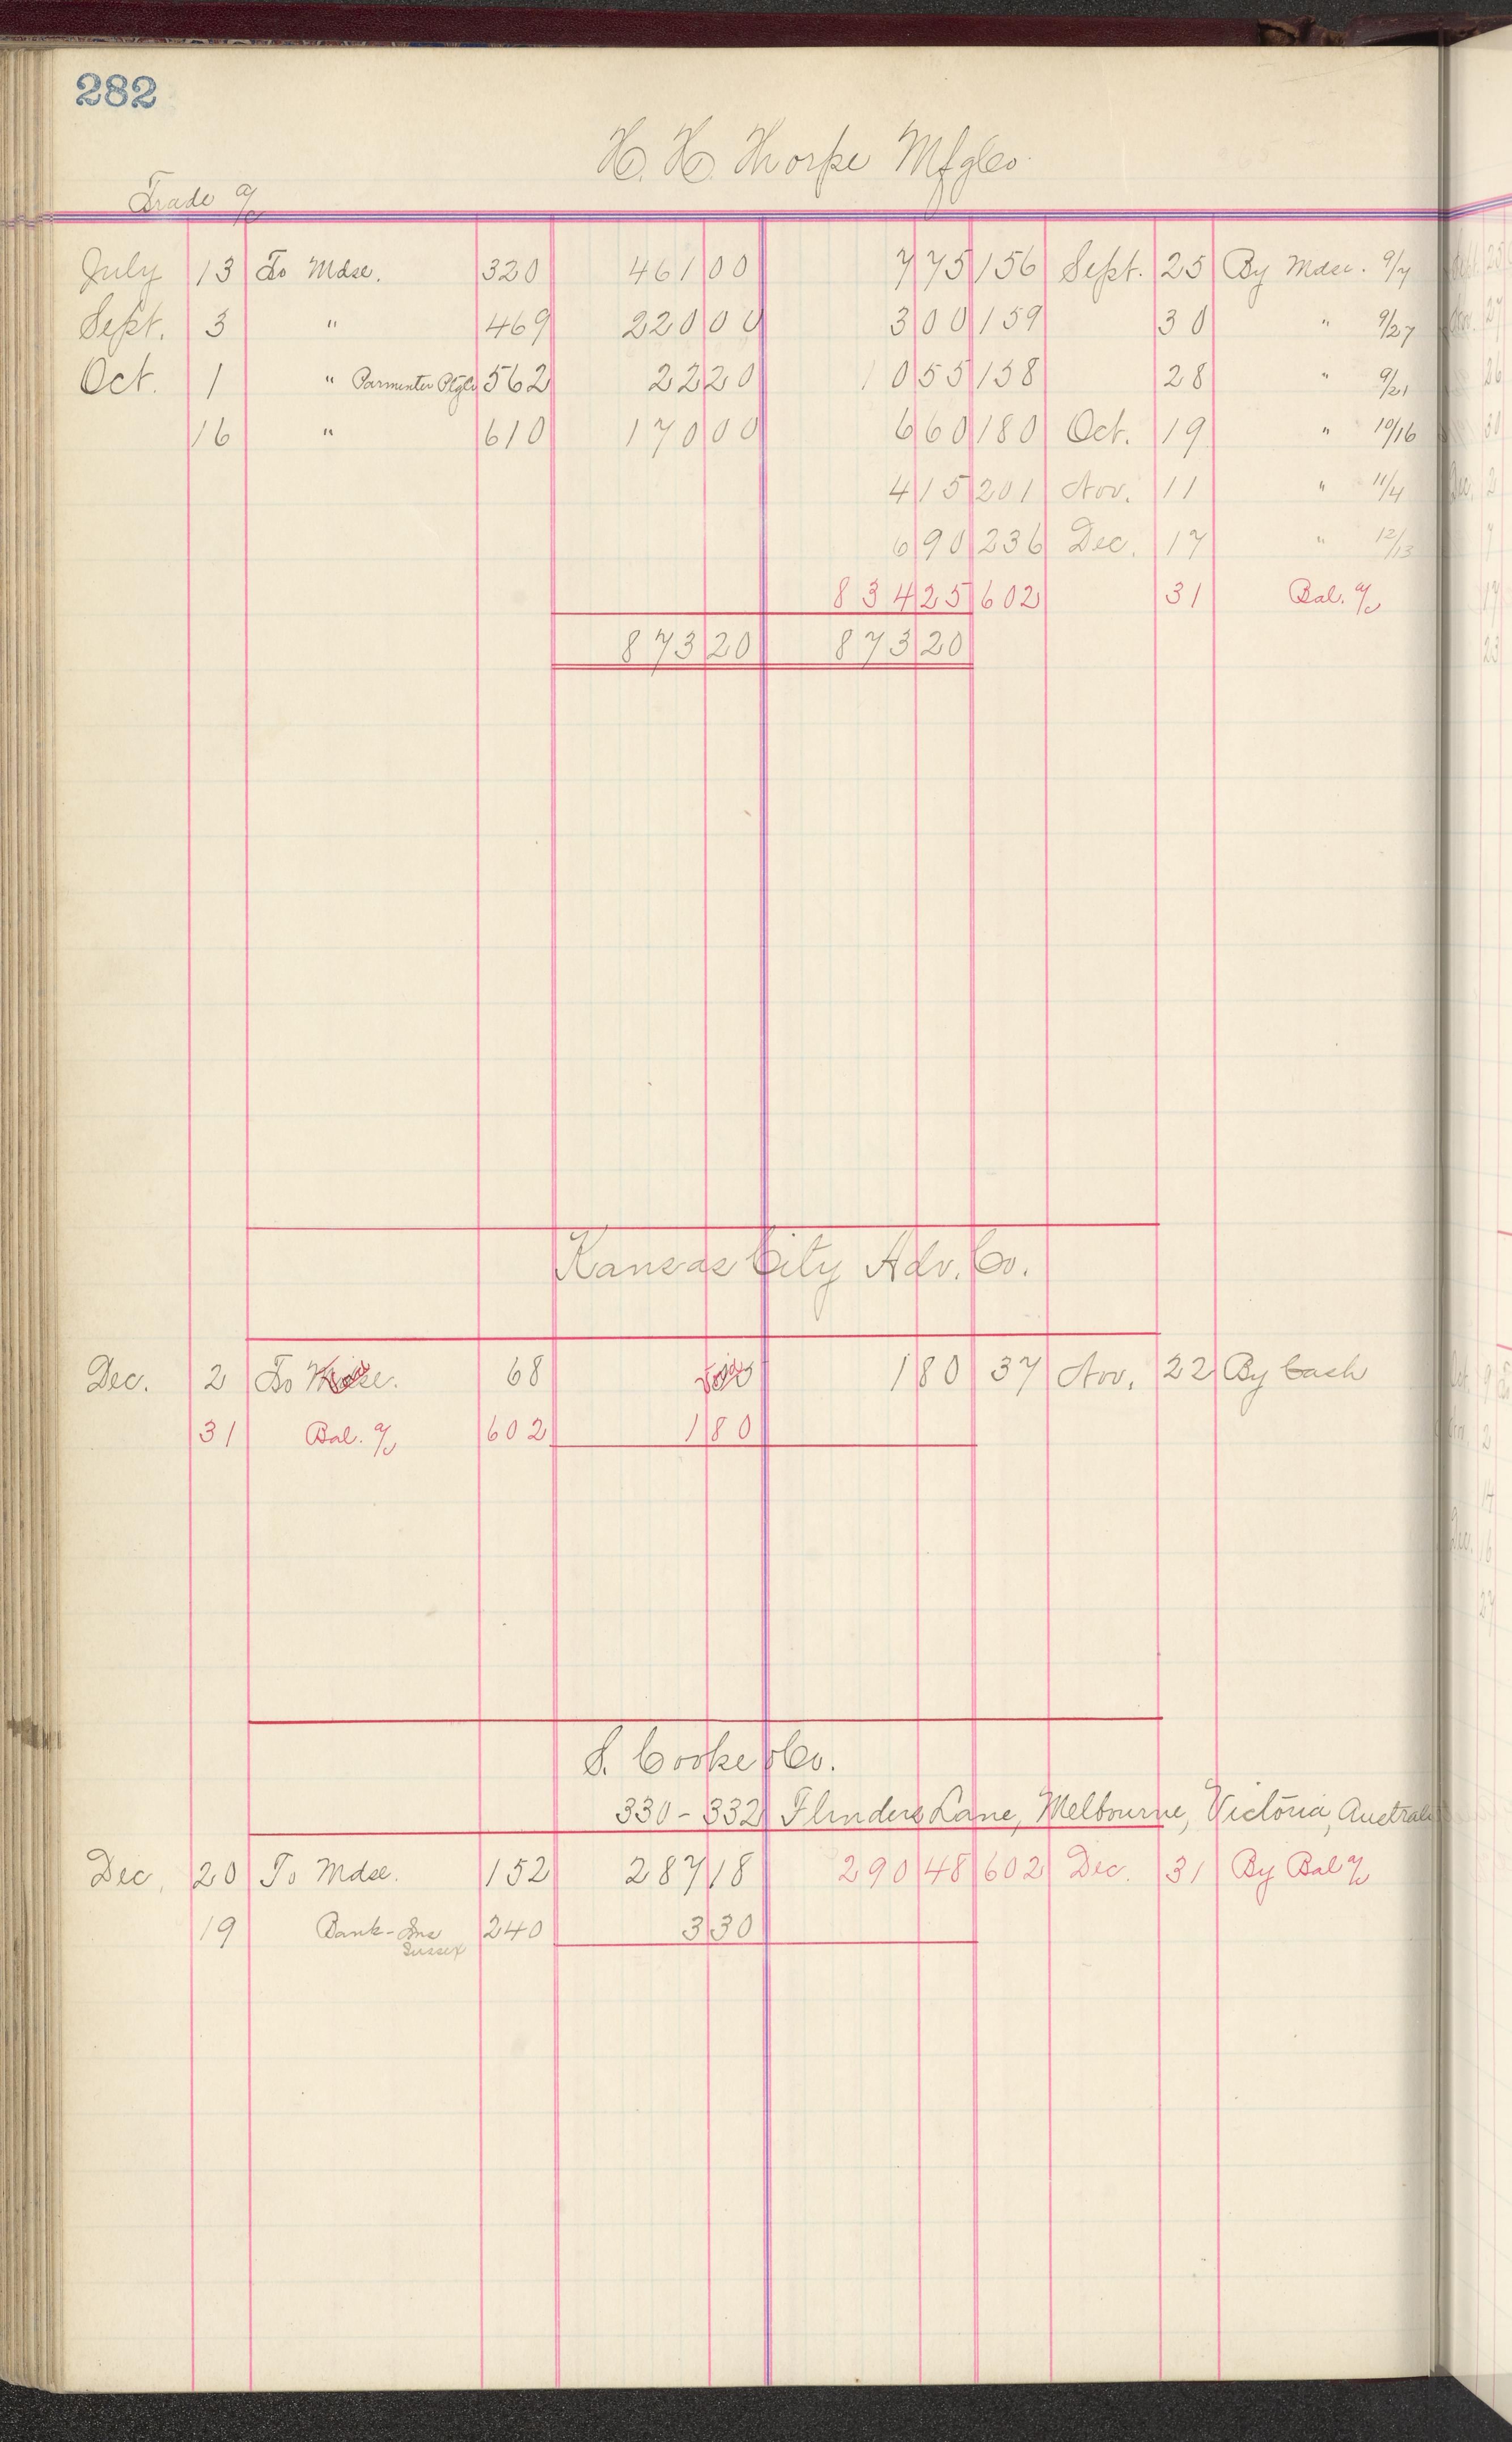 282
H. H. Thorpe Mfg Co.
Trade a/c
July 13 To Mdse. 320 461 00 7 75 156 Sept. 25 By Mdse. 9/7
Sept. 3 " 469 220 00 3 00 159 30 " 9/27
Oct. 1 " Parmenter 562 22 20 10 55 158 28 " 9/21
16 " 610 170 00 6 60 180 Oct. 19 " 10/16
4 15 201 Nov. 11 " 11/4
6 90 236 Dec. 17 " 12/13
834 25 602 31 Bal. a/c
873 20 873 20
Kansas City Adv. Co.
Dec. 2 To Mdse. 68 Void 1 80 37 Nov. 22 By Cash
31 Bal. a/c 602 1 80
S. Cooke & Co.
330-332 Flinders Lane, Melbourne, Victoria, Austral
Dec. 20 To Mdse. 152 287 18 290 48 602 Dec. 31 By Bal a/c
19 Bank - Ins 240 3 30
Sussex